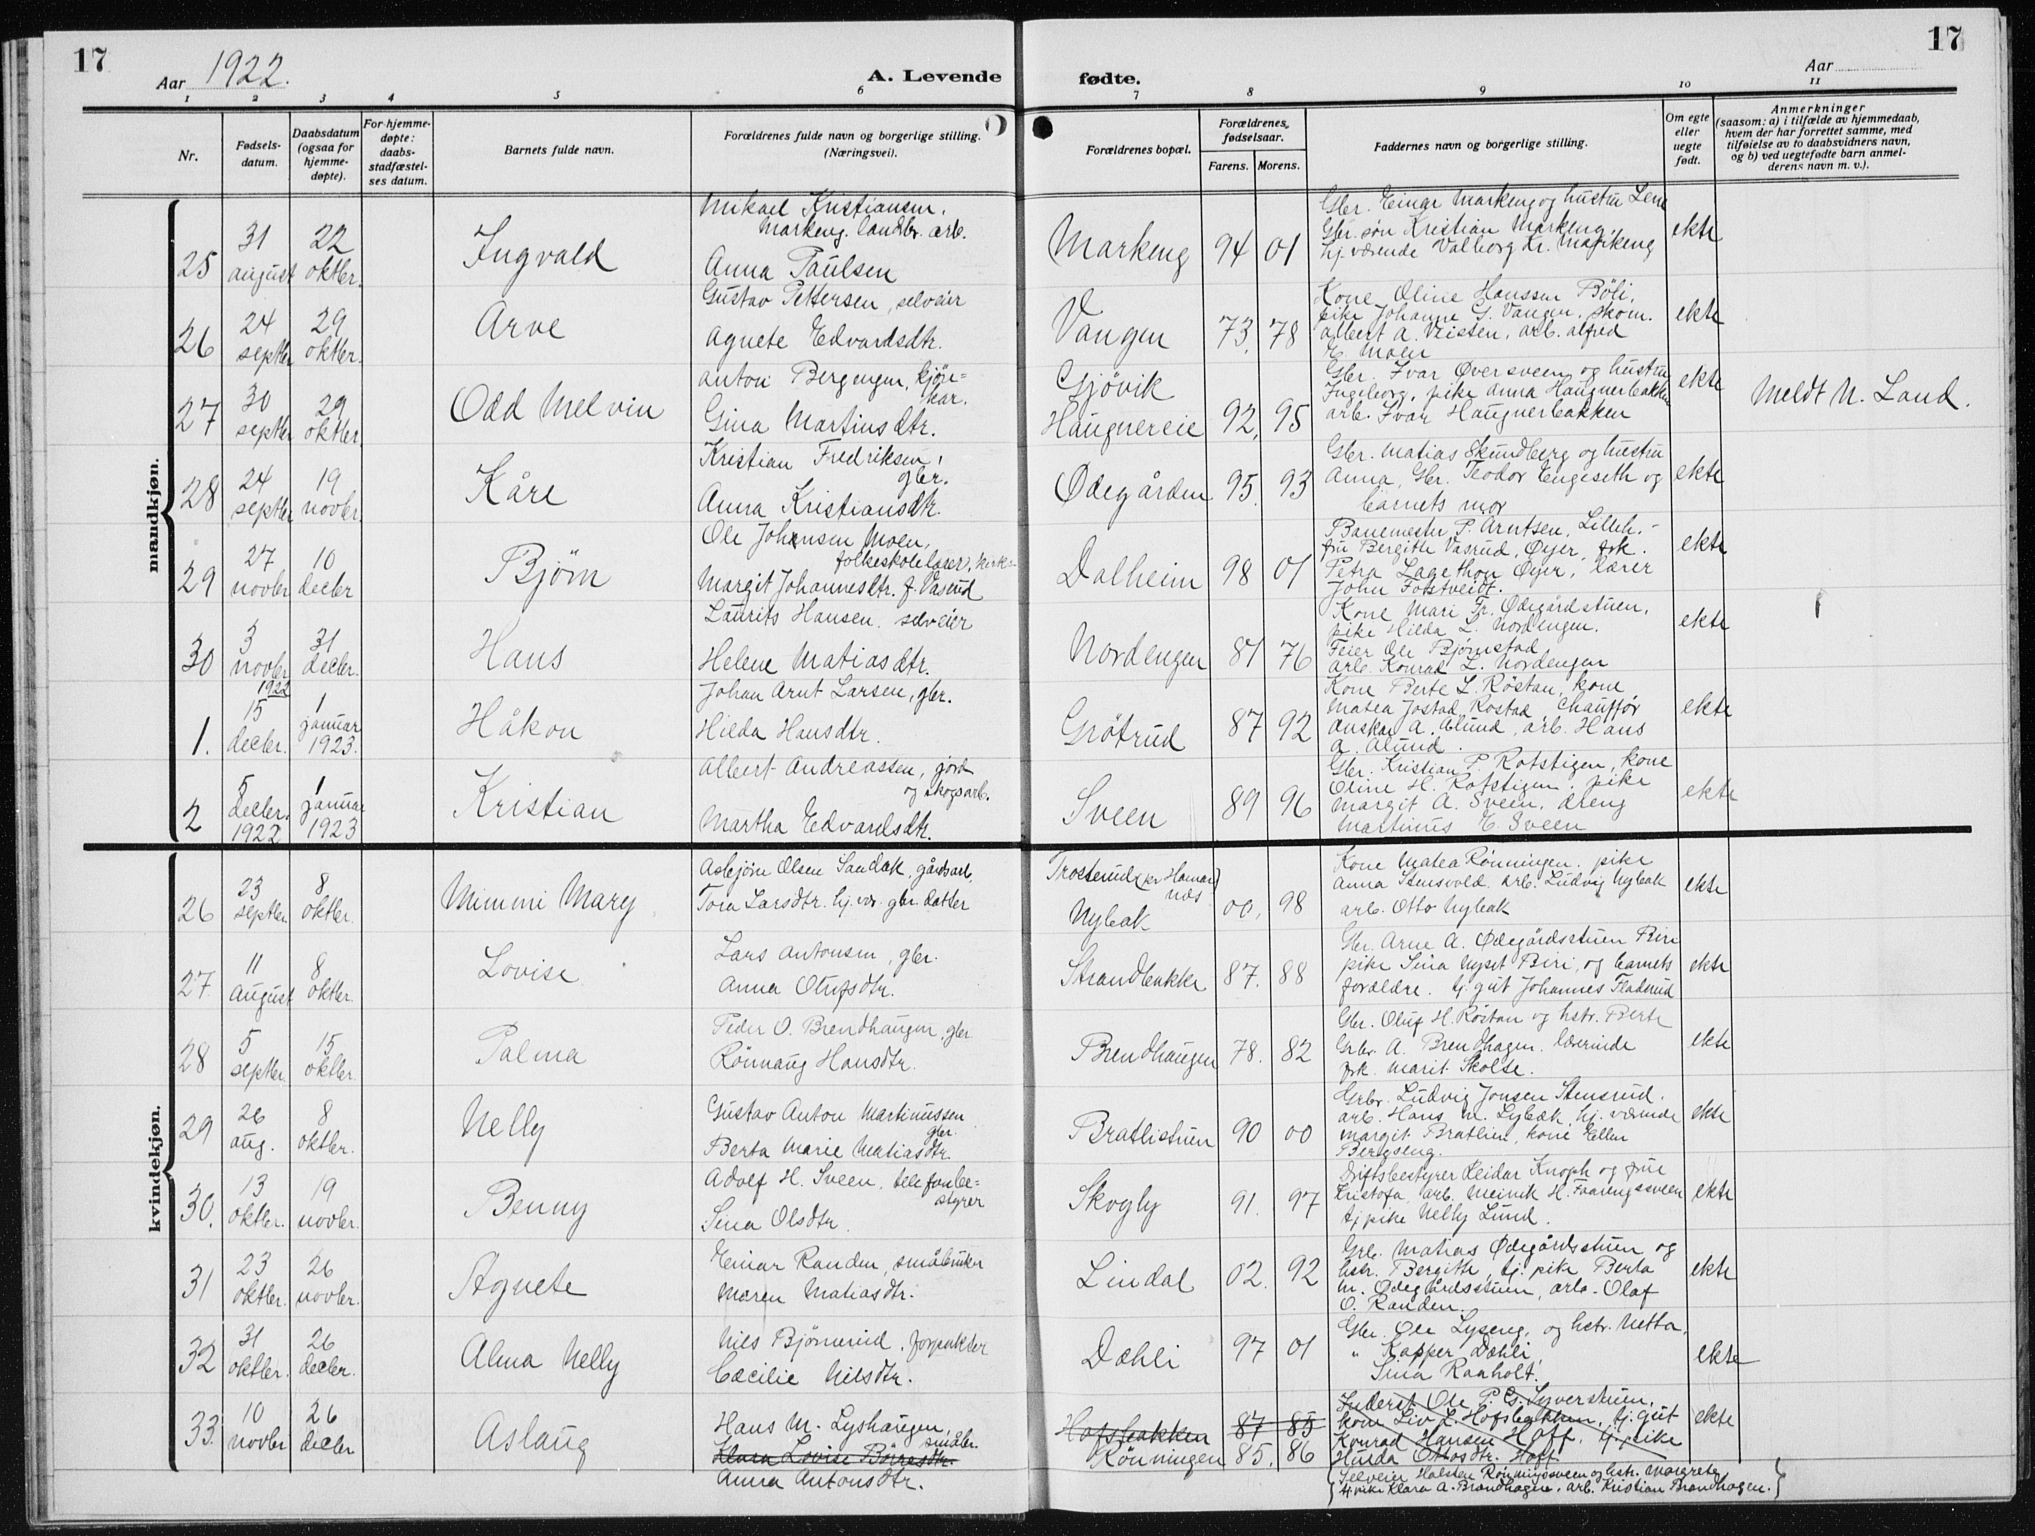 17
Aar 1922.
A. Levende
fødte.
Aar
17
1 2 3 4 5 6 7 8 9 10 11
Nr.
Fødsels-
datum.
Daabsdatum
(ogsaa for
hjemme-
døpte).
For hjemme-
døpte:
daabs-
stadfæstel-
ses datum.
Barnets fulde navn.
Forældrenes fulde navn og borgerlige stilling.
(Næringsvei).
Forældrenes bopæl.
Forældrenes
fødselsaar.
Farens. Morens.
Faddernes navn og borgerlige stilling.
Om egte
eller
uegte
født.
Anmerkninger
(saasom: a) i tilfælde av hjemmedaab,
hvem der har forrettet samme, med
tilføielse av to daabsvidners navn,
og b) ved uegtefødte barn anmel-
derens navn m. v.).
mandkjøn.
25
31
august
22
oktbr.
Ingvald
Mikael Kristiansen,
Markeng. landbr. arb.
Anna Paulsen
Markeng 94 01
Gbr. Einar Markeng og hustru Lene
Gbr. søn Kristian Markeng,
hj. værende Valborg Kr. Markeng
ekte
26
24
septbr
29
oktbr.
Arve
Gustav Pettersen, selveier
Agnete Edvardsdtr.
Vangen 73, 78
Kone Oline Hanssen Böli,
pike Johanne G. Vangen, skom.
Albert A. Veisten, arb. Alfred
E. Moen
ekte
27
30
septbr
29
oktbr.
Odd Melvin
Anton Bergengen, kjøre-
kar.
Gina Martinsdtr.
Gjövik
Haugnereie 92, 95
Gbr. Ivar Øversveen og hustru
Ingeborg, pike Anna Haugnerbakken
arb. Ivar Haugnerbakken
ekte
Meldt N. Land.
28
24
septbr
19
novbr.
Kåre
Kristian Fredriksen,
gbr.
Anna Kristiansdtr.
Ødegården 95. 93
Gbr. Matias Skundberg og hustru
Anna, Gbr. Teodor Engeseth og
barnets mor
ekte
29
27
novbr
10
decbr
Bjørn
Ole Johansen Moen,
folkeskolelærer,
Margit Johannesdtr. f. Vasrud
Dalheim 98 01
Banemester P. Arntsen, Lilleh.-
fru Bergitte Vasrud, Øyer, frk.
Petra Lagethon Øyer, lærer
John Fotstveidt.
ekte
30
3
novbr
1922
31
decbr.
Hans
Laurits Hansen, selveier
Helene Matiasdtr.
Nordengen 81 76
Kone Mari Fr. Ødegårdstuen,
pike Hilda L. Nordengen.
Feier Ole Bjørnstad
arb. Konrad L. Nordengen
ekte
1.
15
decbr.
1
januar
1923.
Håkon
Johan Arnt Larsen, gbr.
Hilda Hansdtr.
Gröterud 87 92
Kone Berte L. Röstan, kone
Matea Jostad, Rostad, Chauffør
Anskar A. Alund, arb. Hans
A. Alund.
ekte
2
5
decbr.
1922
1
januar
1923
Kristian
Albert Andreassen, jord
og skogsarb.
Martha Edvardsdtr.
Sveen 89 96
Gbr. Kristian P. Rofstigen, kone
Oline H. Rofstigen, pike
Margit A. Sveen, dreng
Martinus E. Sveen
ekte
kvindekjøn.
26
23
septbr.
8
oktbr.
Mimmi Mary
Asbjørn Olsen Sandak, gårdsarb,
Tora Larsdtr. hj. vær. gbr. datter
Trosterud (pr Hamar)
næs
Nybak 00, 98
Kone Matea Rönningen, pike
Anna Stensvold, arb. Ludvig Nybak
arb. Otto Nybak
ekte
27
11
august
8
oktbr.
Lovise
Lars Antonsen, gbr.
Anna Olufsdtr.
Strandbakke 87. 88
Gbr. Arne A. Ødegårdsstuen Biri
pike Sina Nyset Biri, og barnets
forældre. tj. gut Johannes Fladerud
ekte
28
5
septbr.
15
oktbr.
Palma
Peder O. Brendhaugen gbr
Rönnaug Hansdtr.
Brendhaugen 78. 82
Gbr. Oluf H. Röstan og hstr. Berte
Grbr. A. Brendhagen. lærerinde
frk. Marit Skolse.
ekte
29
26
aug.
8
oktbr.
Nelly
Gustav Anton Martinussen
gbr.
Berta Marie Matiasdtr.
Bratlistuen 90 00
Grbr. Ludvig Jonsen Stensrud.
arb. Hans M. Lybæk, hj. værende
Margit Bratlien, kone Ellen
Bergseng.
ekte
30.
13
oktbr.
19
novbr.
Benny
Adolf H. Sveen, telefonbe-
styrer
Sina Olsdtr.
Skogly 91. 97
Driftsbestyrer Reidar Knoph og frue
Kristofa, arb. Meinik H. Faarengssveen
tj. pike Nelly Lund.
ekte
31
23
oktbr.
26
novbr.
Agnete
Einar Randen, småbruker
Maren Matiasdtr.
Lindal 02. 92
Grb. Matias Ødegårdsstuen og
hstr. Bergith, tj. pike Berta
M. Ødegårdsstuen, arb. Olaf
O. Randen.
ekte
32
31
oktbr.
26
decbr.
Alma Nelly
Nils Bjørnerud, forpakter
Cæcilie Nilsdtr.
Dæhli 97 01
Gbr. Ole Lyseng, og hstr. Netta,
" Kasper Dæhli
Sina Raaholt.
ekte
33.
10
novbr
26
decbr
Aslaug
Hans M. Lyshaugen,
småbr.
Klara Lovise Börresdtr.
Anna Antonsdtr.
Hofsbakken 87 85
Rönningen 85. 86
Inderst Ole P. G. Syverstuen,
kone Liv L. Hofsbakken, tj. gut
Konrad Hansen Hoff, tj. pike
Hulda Ottosdtr. Hoff
(Selveier Halsten Rönningsveen og hstr. Margrete
tj. pike Klara A. Brandhagen, arb. Kristian Brandhagen.)
ekte